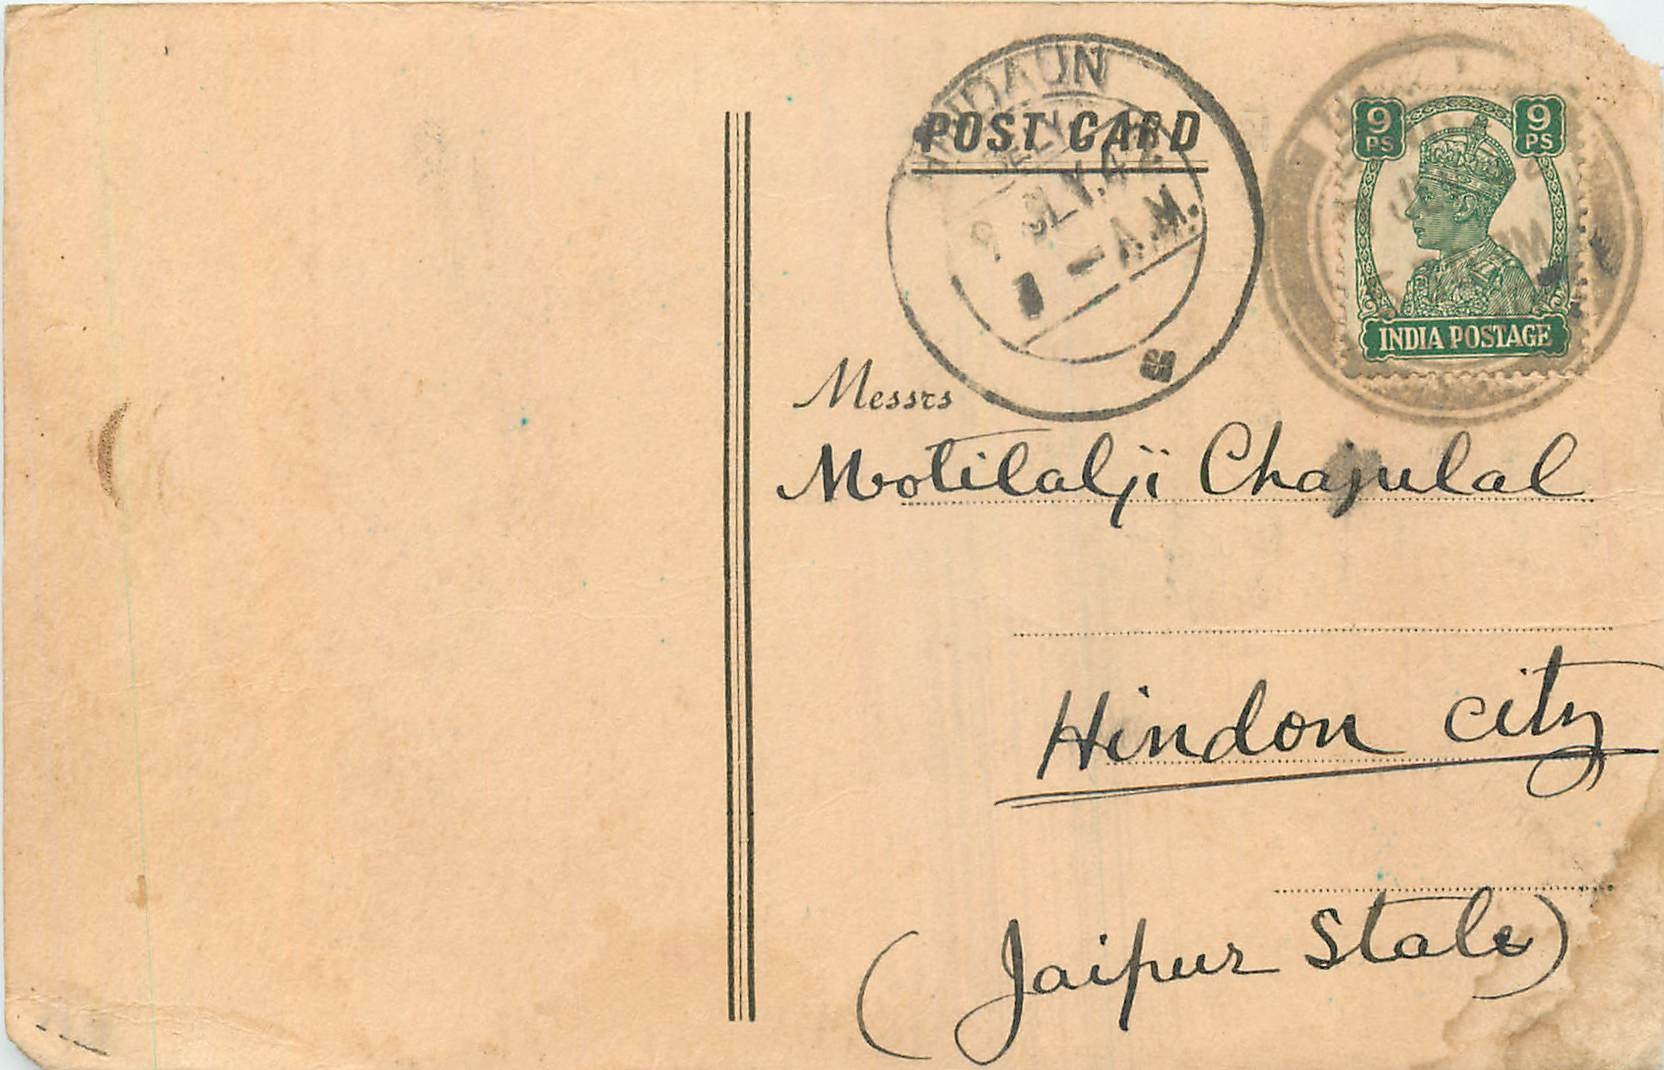 POST CARD
HINDAUN
DELY.
9 JLY.42
A.M.
9 PS 9 PS
INDIA POSTAGE
Messrs
Motilalji Chajulal
Hindon City
(Jaipur State)